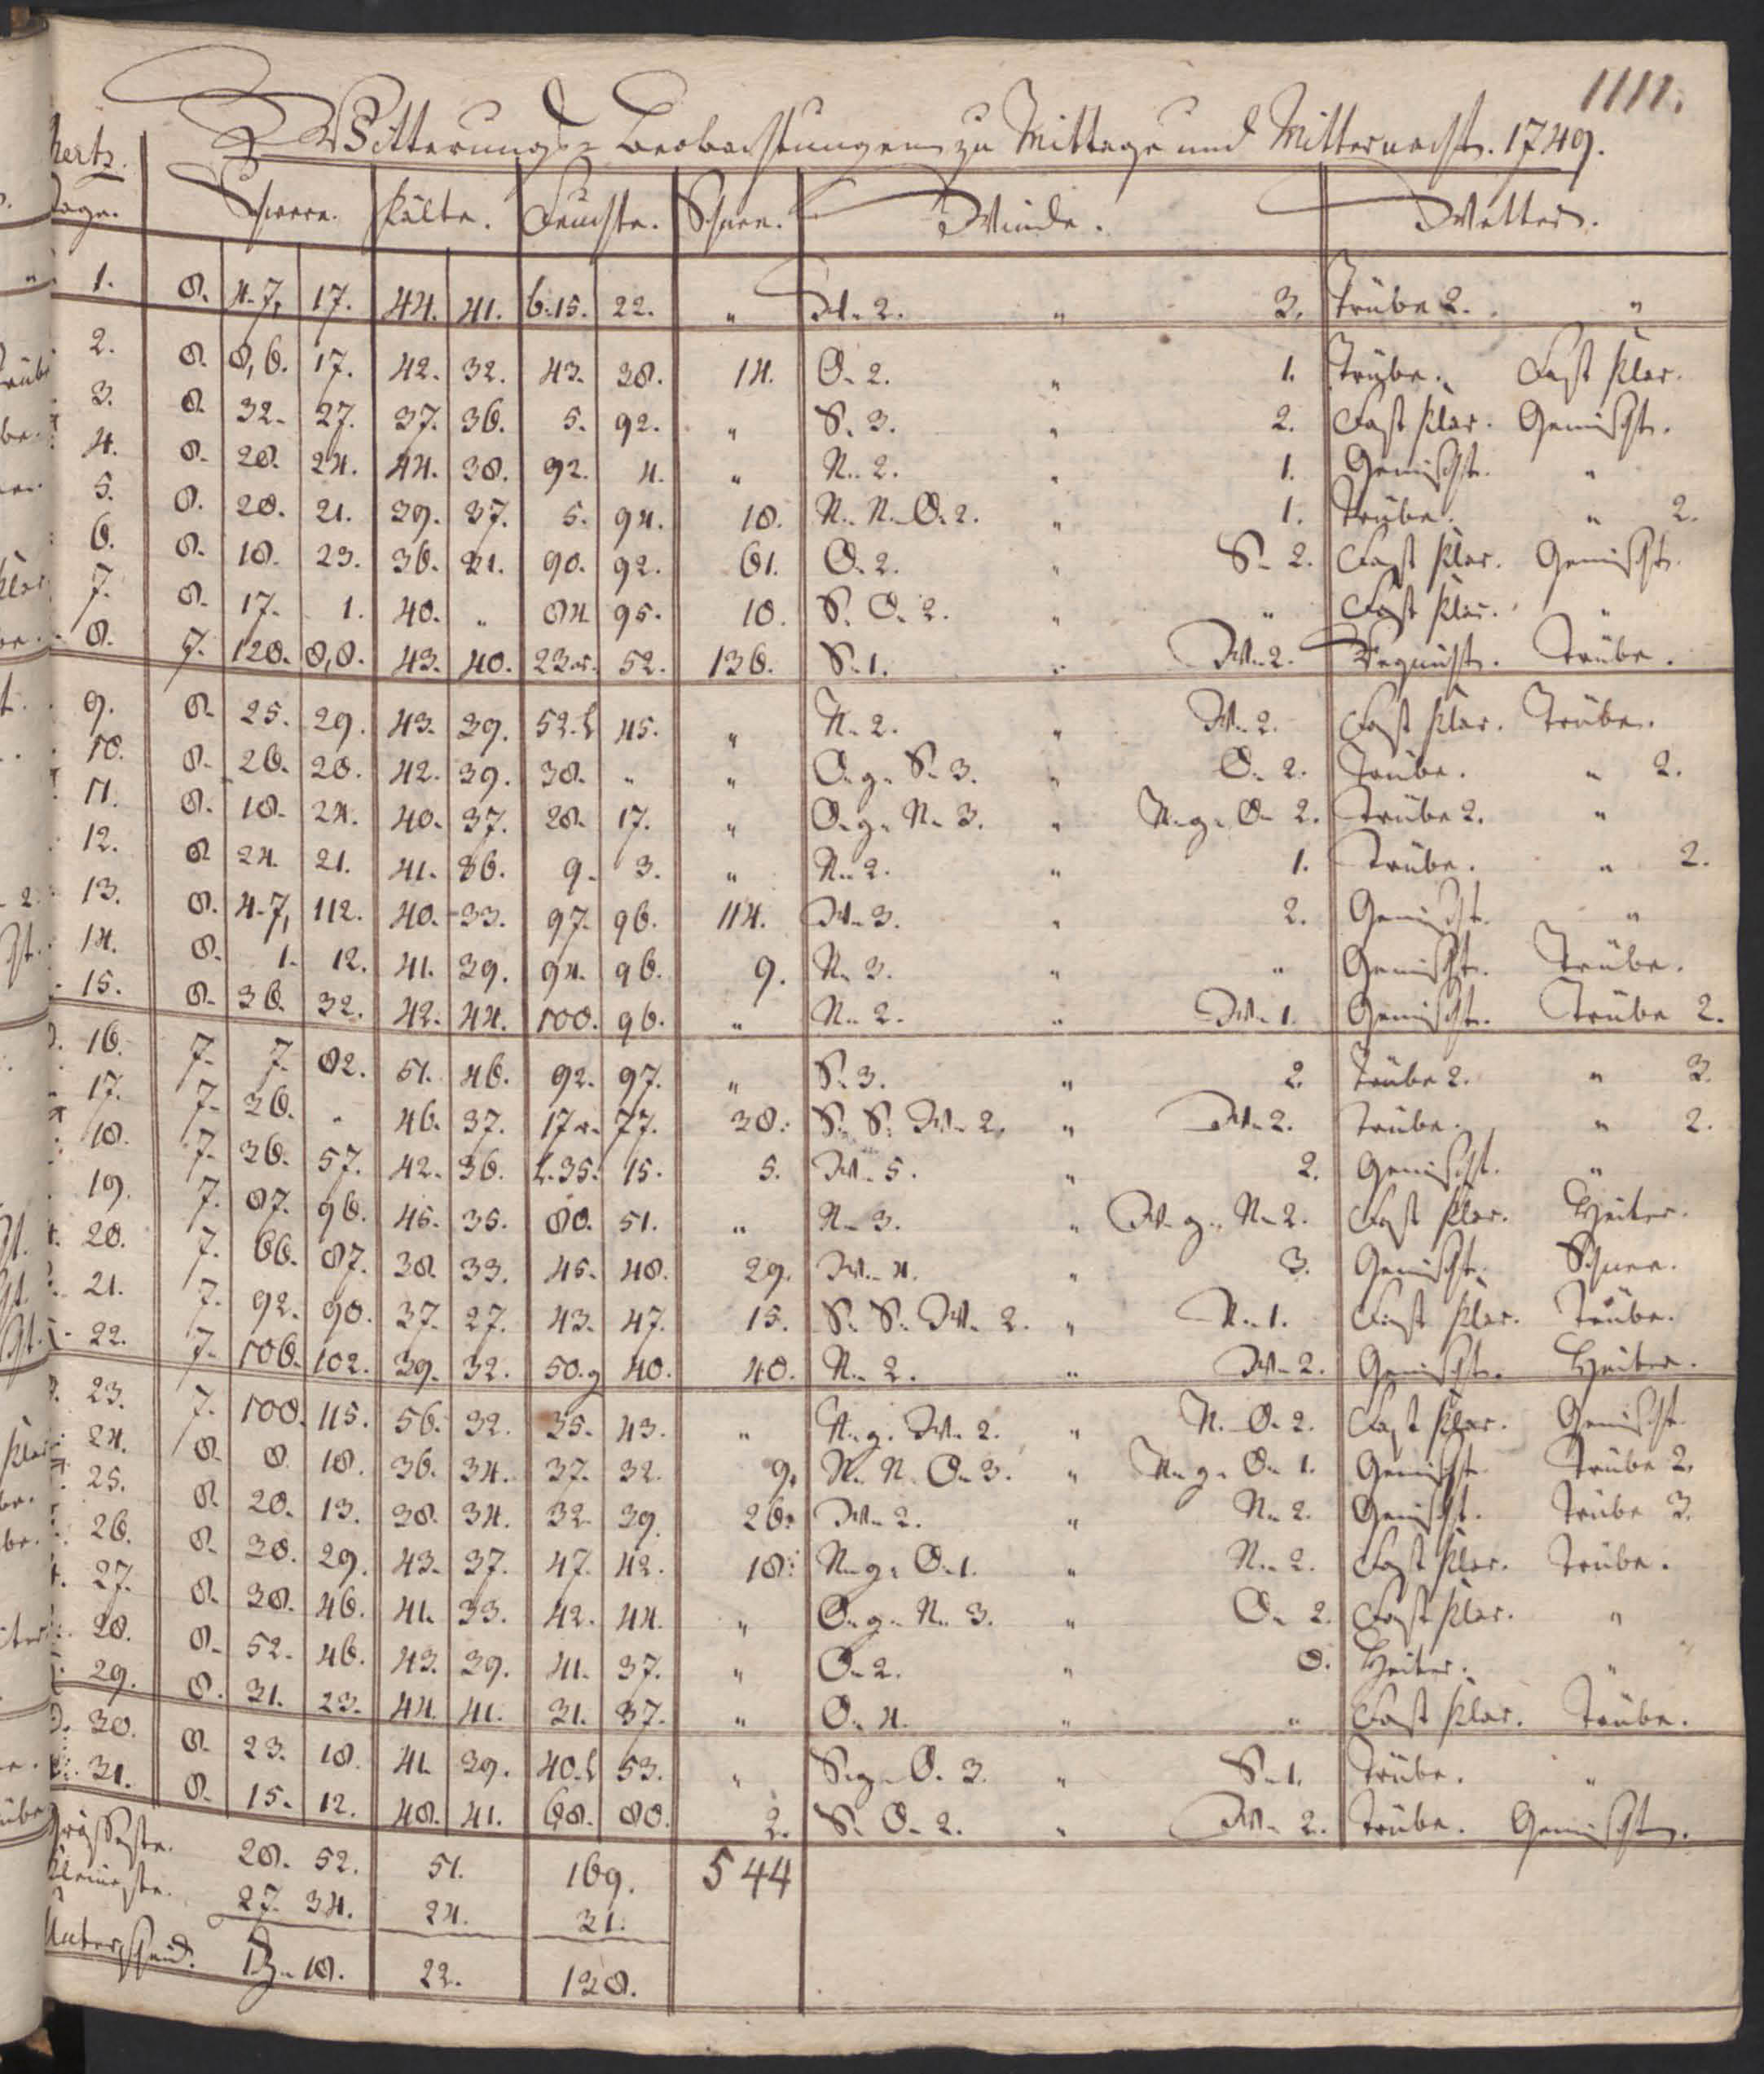 1111.
Witterungs-Beobachtungen zu Mittage und Mitternacht. 1749.
Mertz.
Tage. Schwere. Kälte. Feuchte. Schnee. Winde. Wetter.
1. 8. 4-7, 17. 44. 41. 6.15. 22. " W. 2. " 3. Trübe 2. "
2. 8. 8,6. 17. 42. 32. 43. 38. 14. O. 2. " 1. Trübe. Fast klar.
3. 8. 32. 27. 37. 36. 5. 92. " S. 3. " 2. Fast klar. Gemischt.
4. 8. 28. 24. 44. 38. 92. 4. " N. 2. " 1. Gemischt. "
5. 8. 20. 21. 39. 37. 5. 94. 18. N. N. O. 2. " 1. Trübe. " 2.
6. 8. 18. 23. 36. 21. 90. 92. 61. O. 2. " S. 2. Fast klar. Gemischt.
7. 8. 17. 1. 40. " 84. 95. 10. S. O. 2. " " Fast klar. "
8. 7. 120. 8,8. 43. 40. 23 52. 136. S. 1. " W. 2. Trübe.
9. 8. 25. 29. 43. 39. 52. 45. " N. 2. " W. 2. Fast klar. Trübe.
10. 8. 26. 28. 42. 39. 38. " " O. g. S. 3. " O. 2. Trübe. " 2.
11. 8. 18. 24. 40. 37. 28. 17. " O. g. N. 3. " N. g. O. 2. Trübe 2. "
12. 8. 24. 21. 41. 36. 9. 3. " N. 2. " 1. Trübe. " 2.
13. 8. 4-7, 112. 40. 33. 97. 96. 114. W. 3. " 2. Gemischt. "
14. 8. 1. 12. 41. 39. 94. 96. 9. N. 3. " " Gemischt. Trübe.
15. 8. 36. 32. 42. 44. 100. 96. " N. 2. " W. 1. Gemischt. Trübe 2.
16. 7. 7. 82. 51. 46. 92. 97. " S. 3. " 2. Trübe 2. " 3.
17. 7. 36. " 46. 37. 17 77. 38. S. S. W. 2. " W. 2. Trübe. " 2.
18. 7. 36. 57. 42. 36. 35. 15. 5. W. 5. " 2. Gemischt. "
19. 7. 87. 96. 45. 35. 80. 51. " N. 3. " W. g. N. 2. Fast klar. Heiter.
20. 7. 66. 87. 38. 33. 45. 48. 29. W. 4. " 3. Gemischt. Schnee.
21. 7. 92. 90. 37. 27. 43. 47. 15. S. S. W. 2. " N. 1. Fast klar. Trübe.
22. 7. 106. 102. 39. 32. 50. 40. 40. N. 2. " W. 2. Gemischt. Heiter.
23. 7. 108. 115. 56. 32. 35. 43. " N. g. W. 2. " N. O. 2. Fast klar. Gemischt.
24. 8. 8. 18. 36. 34. 37. 32. 9. N. N. O. 3. " N. g. O. 1. Gemischt. Trübe 2.
25. 8. 20. 13. 38. 34. 32. 39. 26. W. 2. " N. 2. Gemischt. Trübe 3.
26. 8. 30. 29. 43. 37. 47. 42. 18. N. g. O. 1. " N. 2. Fast klar. Trübe.
27. 8. 38. 46. 41. 33. 42. 44. " O. g. N. 3. " O. 2. Fast klar. "
28. 8. 52. 46. 43. 39. 41. 37. " O. 2. " 0. Heiter. "
29. 8. 31. 23. 44. 41. 31. 37. " O. 4. " " Fast klar. Trübe.
30. 8. 23. 18. 41. 39. 40. 53. " S. g. O. 3. " S. 1. Trübe. "
31. 8. 15. 12. 48. 41. 68. 80. 2. S. O. 2. " W. 2. Trübe. Gemischt.
Grösseste. 28. 52. 51. 169. 544
Kleineste. 27. 34. 24. 31.
Unterscheid. 18. 22. 138.